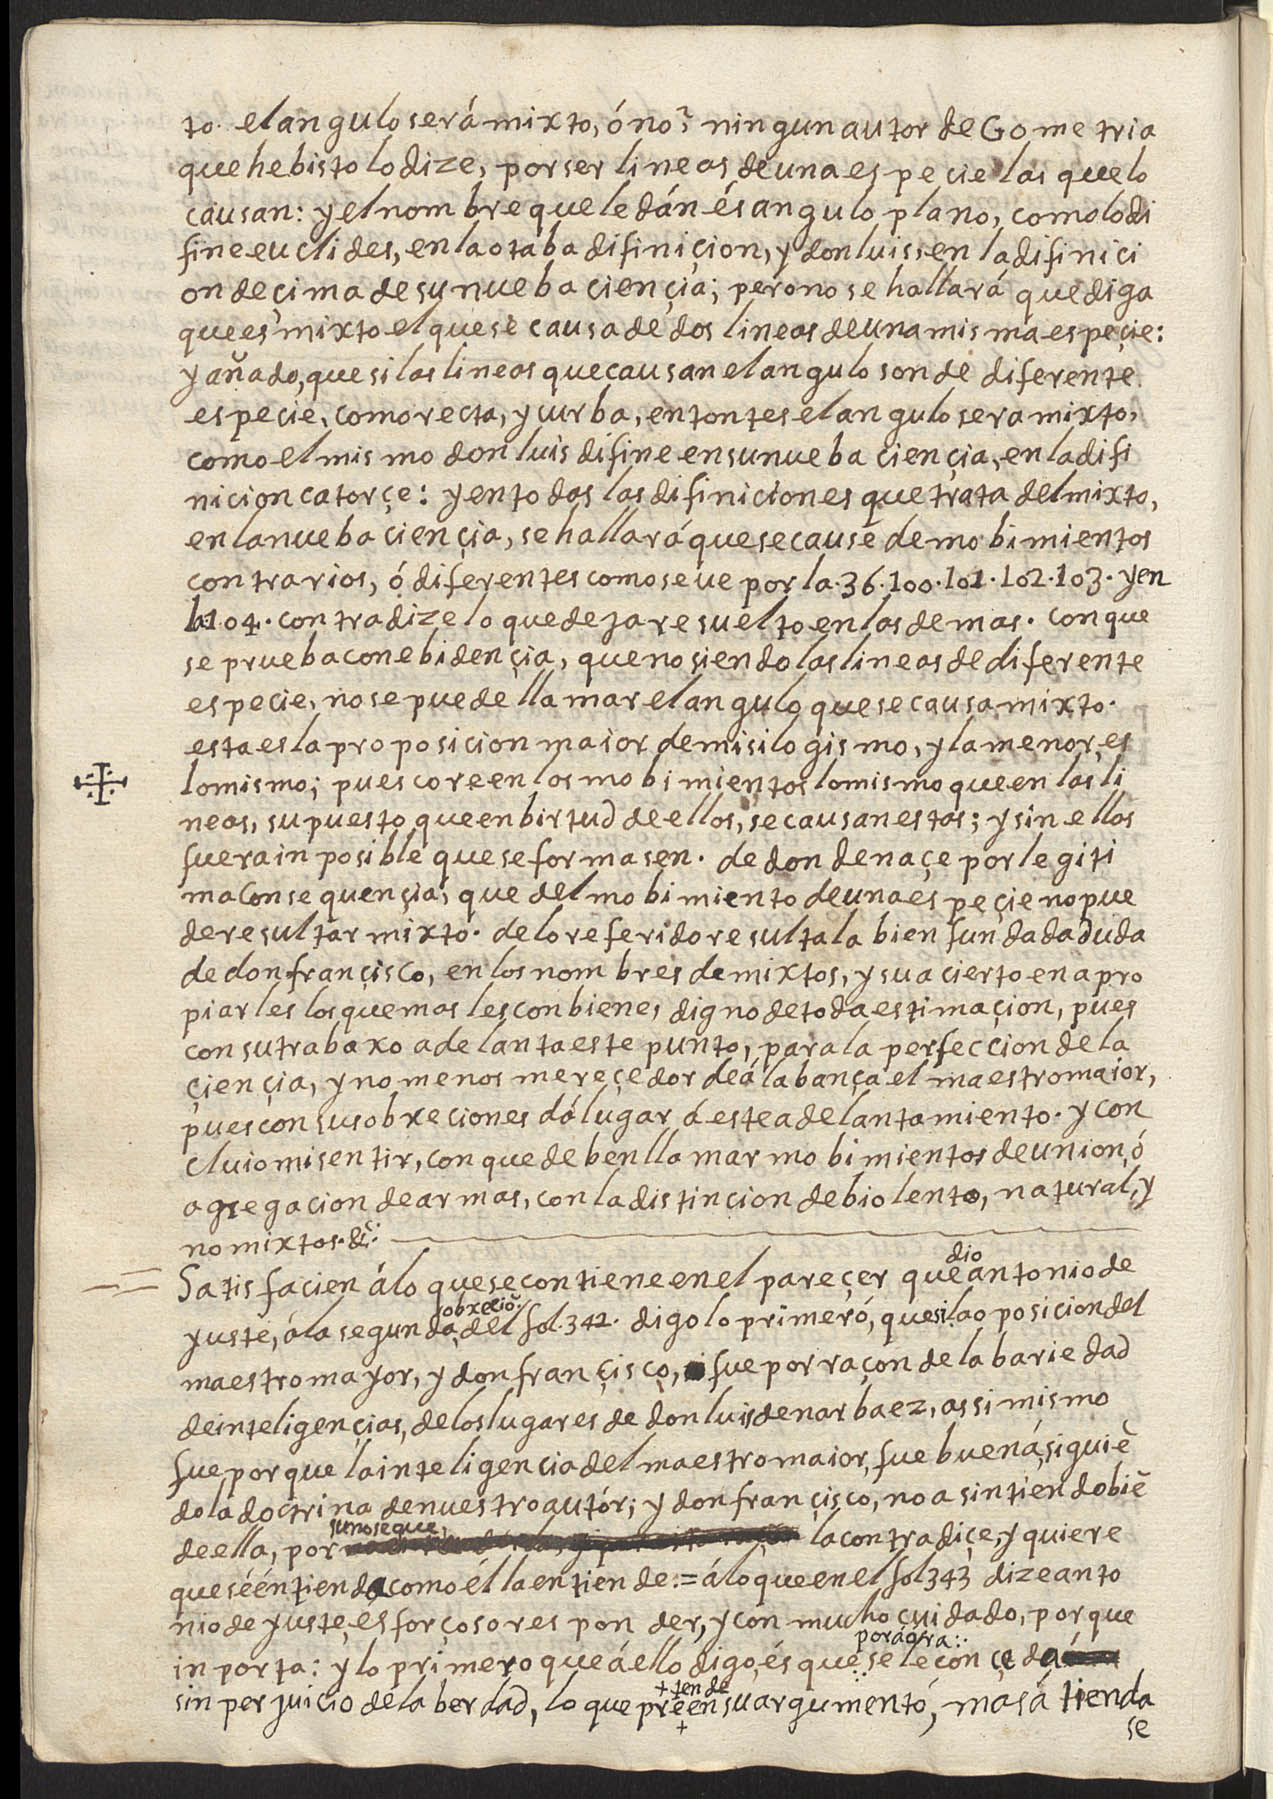 to. el angulo será mixto, ó no? ningun autor de Gometria
que he bisto lo dize, por ser lineas de una especie las que lo
causan: y el nombre que le dán és angulo plano, como lo di
fine euclides, en la otaba difiniçion, y don luis, en la difinici
on deçima de su nueba çiençia; pero no se hallará que diga
que es mixto el que se causa de dos lineas de una misma espeçie:
y añado, que si las lineas que causan el angulo son de diferente
especie, como recta, y curba, entontes el angulo sera mixto,
como el mismo don luis difine en su nueba çiençia, en la difi
nicion catorçe: y en todas las difiniciones que trata del mixto,
en la nueba çiençia, se hallará que se cause de mobimientos
contrarios, ó diferentes como se ue por la .36.100.101.102.103. y en
la 104. contradize lo que deja resuelto en las demas. con que
se prueba con ebidençia, que no siendo las lineas de diferente
especie, no se puede llamar el angulo que se causa mixto.
esta es la proposicion maior de mi silogismo, y la menor, es
lo mismo; pues core en los mobimientos lo mismo que en las li
neas, supuesto que en birtud de ellos, se causan estas; y sin ellos
fuera inposible que se formasen. de donde naçe por legiti
ma consequençia, que del mobimiento de una espeçie no pue
de resultar mixto. de lo referido resulta la bien fundada duda
de don françisco, en los nombres de mixtos, y su acierto en apro
piarles los que mas les conbiene, digno de toda estimaçion, pues
con su trabaxo adelanta este punto, para la perfeccion de la
çiençia, y no menos mereçedor de álabança el maestro maior,
pues con sus obxeciones dá lugar á este adelantamiento. y con
cluio mi sentir, con que deben llamar mobimientos de union, ó
agregacion de armas, con la distincion de biolento, natural, y
no mixtos. &c.
Satisfacien álo que se contiene en el pareçer que dio antonio de
yuste, á la segunda obxeciõ. del fol. 342. digo lo primeró, que si la oposicion del
maestro mayor, y don françisco, fue por raçon de la bariedad
de inteligençias, de los lugares de don luis de narbaez, assi mismo
fue, porque la inteligençia del maestro maior, fue buena, siguiẽ
do la doctrina de nuestro autór; y don françisco, no asintiendo biẽ
de ella, por su no se que, la contradiçe, y quiere
que sé éntienda como él la entiende: = á lo que en el fol 343 dize anto
nio de yuste, es forçoso responder, y con mucho cuidado, porque
inporta: y lo primero que á ello digo, és que se le conçeda por ágora:
sin perjuicio de la berdad, lo que pretende en su argumentó, mas átienda
se